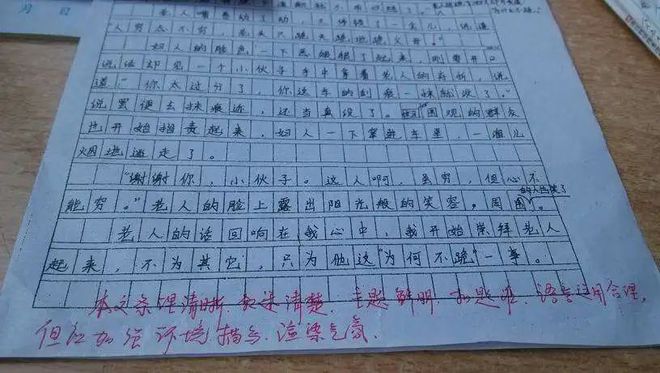 月 日
老人嘴唇动了动，
人穷志不穷，
妇人的脸色一下
说话却见一个小伙子手中拿着老人的布折，说
道“你太过分了，你这车的刮痕一抹就没了。”
说罢便去抹痕迹，还当真没了。围观的群众
也开始指责起来，妇人一下拿进车里，一溜儿
烟地逃走了。
“谢谢你，小伙子。这人啊，虽穷，但心不
能穷。”老人的脸上露出阳光般的笑容。周围的人也笑了。
老人的话回响在我心中，我开始崇拜老人
起来，不为其它，只为他这“为何不跪”一事。
本文条理清晰，叙述清楚，主题鲜明，扣题准，语言运用合理，
但应加强环境描写，渲染气氛。